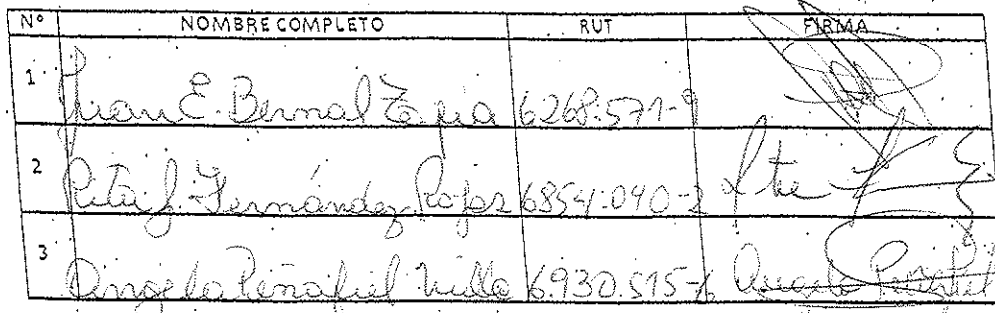 Nº NOMBRE COMPLETO RUT FIRMA
1 Juan E. Bernal Tapia 6268.571-9
2 Rita J. Fernández Rojas 6854.040-2
3 Angela Peñafiel Villa 6.930.515-6 Angela Peñafiel